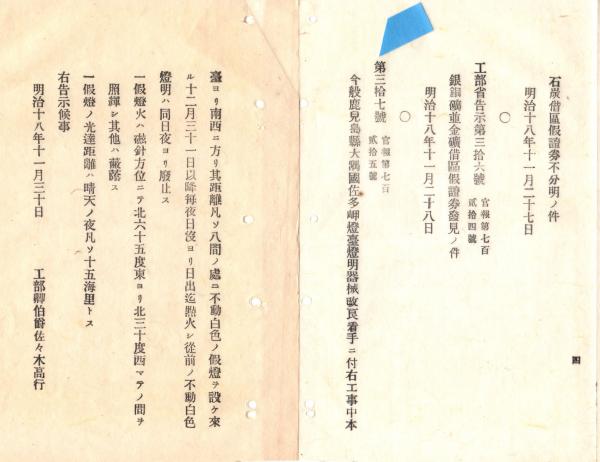 石炭借區假證劵不分明ノ件
明治十八年十一月二十七日
〇
工部省告示第三拾六號
官報第七百
貳拾四號
銀銅礦並金礦借區假證劵發見ノ件
明治十八年十一月二十八日
〇
第三拾七號
官報第七百
貳拾五號
今般鹿兒島縣大隅國佐多岬燈臺燈明器械改良着手ニ付右工事中本
四
臺ヨリ南西ニ方リ其距離凡ソ八間ノ處ニ不動白色ノ假燈ヲ設ケ來
ル十二月三十一日以降每夜日沒ヨリ日出迄點火シ從前ノ不動白色
燈明ハ同日夜ヨリ廢止ス
一假燈火ハ磁針方位ニテ北六十五度東ヨリ北三十度西マテノ間ヲ
照輝シ其他ハ蔽蔭ス
一假燈ノ光達距離ハ晴天ノ夜凡ソ十五海里トス
右告示候事
明治十八年十一月三十日
工部卿伯爵佐々木高行